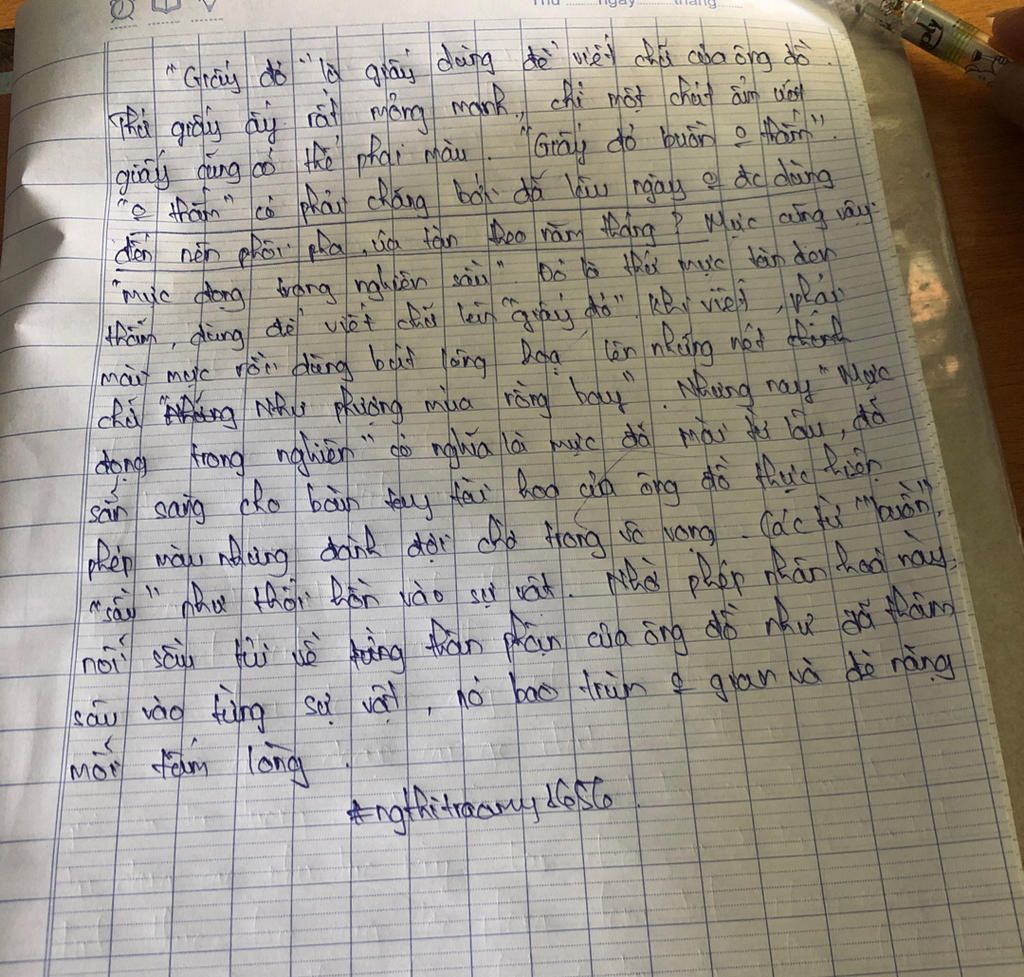 Thứ ngày tháng
"Giấy đỏ" là giấy dùng để viết chữ của ông đồ.
Thứ giấy ấy rất mỏng manh, chỉ một chút ẩm ướt
giấy cũng có thể phai màu. "Giấy đỏ buồn o thắm".
"o thắm" có phải chăng bởi đã lâu ngày o đc dùng
đến nên phôi pha, úa tàn theo năm tháng? Mực cũng vậy:
"mực đọng trong nghiên sầu". Đó là thứ mực tàu đen
thắm, dùng để viết chữ lên "giấy đỏ". Khi viết, phải
mài mực rồi dùng bút lông hoạ lên những nét
chữ "Như phượng múa rồng bay". Nhưng nay "Mực
đọng trong nghiên" có nghĩa là mực đã mài từ lâu, đã
sẵn sàng cho bàn tay tài hoa của ông đồ thực hiện
phép màu nhưng đành đợi chờ trong vô vọng. Các từ "buồn",
"sầu" như thổi hồn vào sự vật. Nhờ phép nhân hoá này,
nỗi sầu tủi về từng thân phận của ông đồ như đã thấm
sâu vào từng sự vật, nó bao trùm o gian và đè nặng
mỗi tấm lòng.